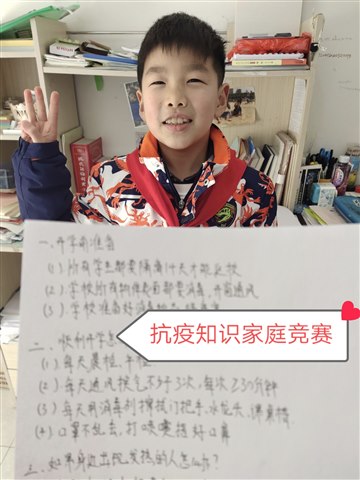 一、开学前准备
(1).所有学生都要隔离14天才能返校
(2).学校所有物体表面都要消毒,开窗通风
(3).学校准备好消毒
抗疫知识家庭竞赛
二、顺利开学
(1).每天晨检、午检
(2).每天通风换气不少3次,每次≥30分钟
(3).每天用消毒剂擦拭门把手、水龙头、课桌椅
(4).口罩不乱丢,打喷嚏捂好口鼻
三、如果身边出现发热的人怎么办?